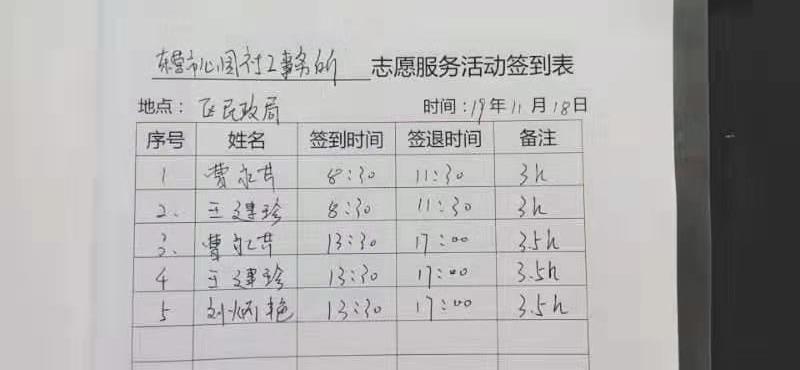 东营市心圆社工事务所 志愿服务活动签到表
地点：区民政局 时间：19年11月18日
序号 姓名 签到时间 签退时间 备注
1 曹永芹 8:30 11:30 3h
2、 王建珍 8:30 11:30 3h
3、 曹永芹 13:30 17:00 3.5h
4 王建珍 13:30 17:00 3.5h
5 刘炳艳 13:30 17:00 3.5h